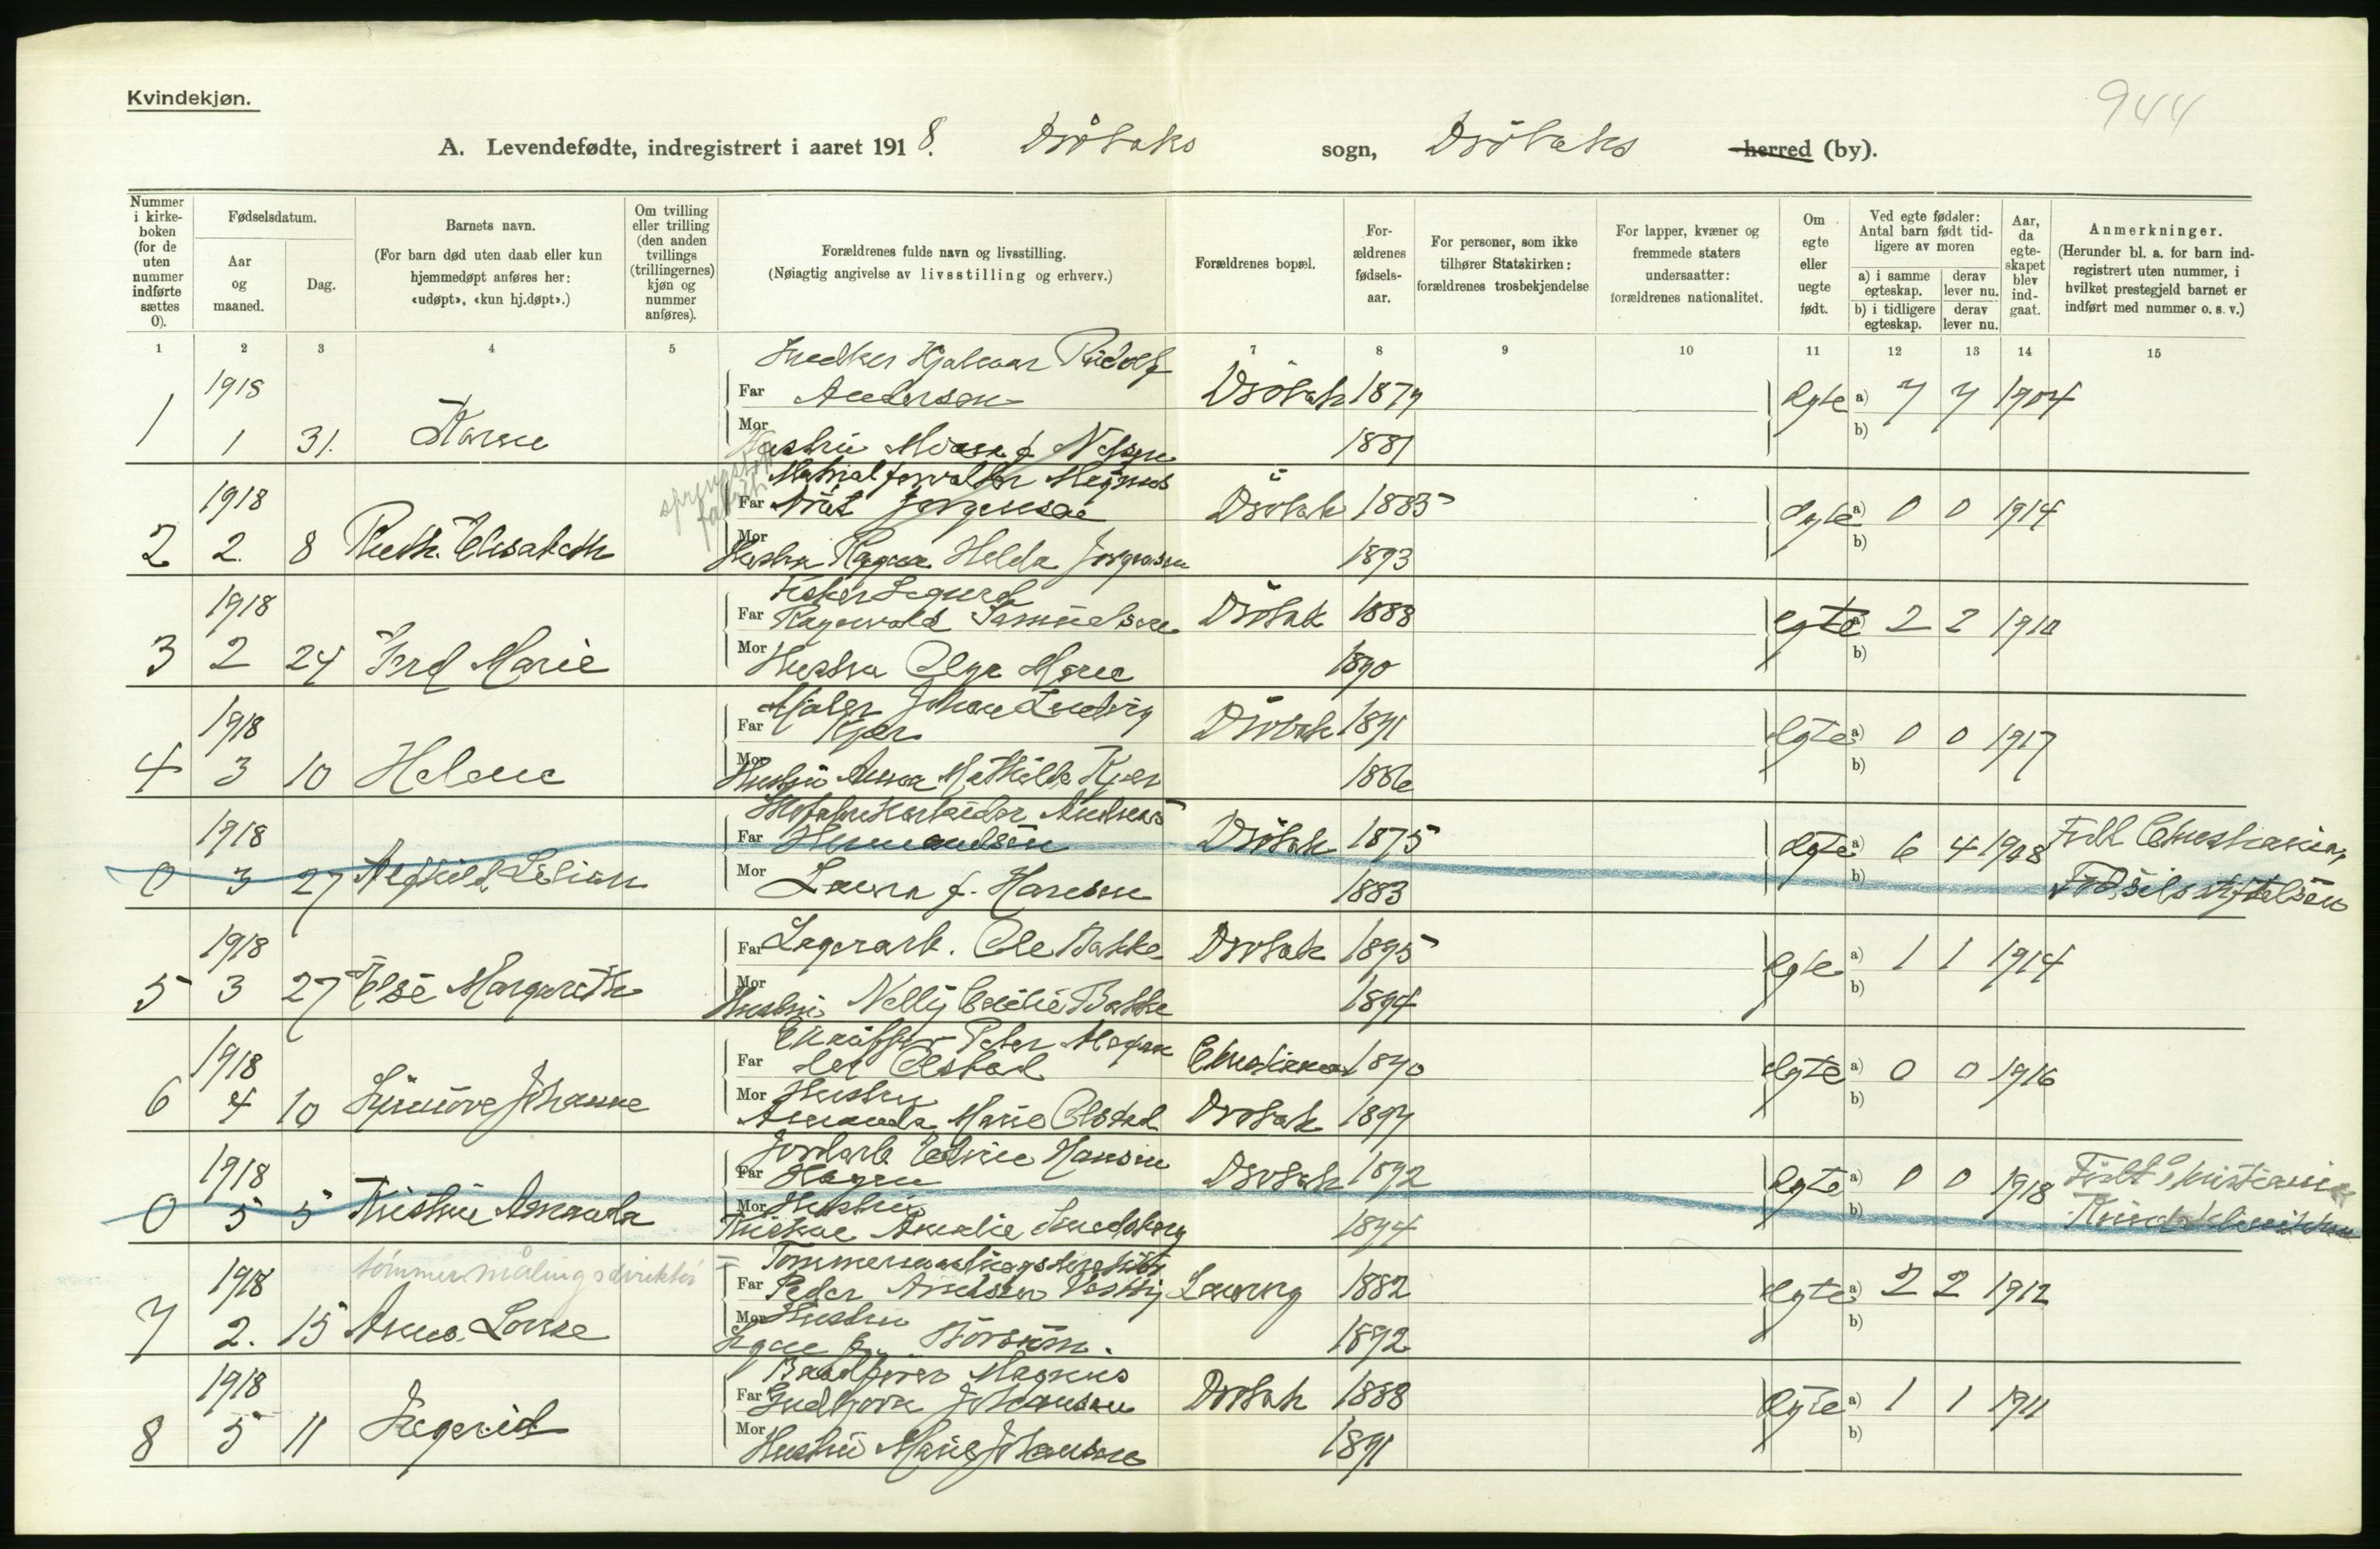 Kvindekjøn.
944
A. Levendefødte, indregistrert i aaret 1918. Drøbaks sogn, Drøbaks herred (by).
Nummer i kirkeboken (for de uten nummer indførte sættes 0).
Fødselsdatum.
Aar og maaned.
Dag.
Barnets navn.
(For barn død uten daab eller kun hjemmedøpt anføres her: «udøpt», «kun hj.døpt».)
Om tvilling eller trilling (den anden tvillings (trillingernes) kjøn og nummer anføres).
Forældrenes fulde navn og livsstilling.
(Nøiagtig angivelse av livsstilling og erhverv.)
Forældrenes bopæl.
Forældrenes fødselsaar.
For personer, som ikke tilhører Statskirken: forældrenes trosbekjendelse
For lapper, kvæner og fremmede staters undersaatter: forældrenes nationalitet.
Om egte eller uegte født.
Ved egte fødsler: Antal barn født tidligere av moren
a) i samme egteskap. derav lever nu.
b) i tidligere egteskap. derav lever nu.
Aar, da egteskapet blev indgaat.
Anmerkninger.
(Herunder bl. a. for barn indregistrert uten nummer, i hvilket prestegjeld barnet er indført med nummer o. s. v.)
1 2 3 4 5 7 8 9 10 11 12 13 14 15
Hjalmar Rudolf
1918 Far Andersen Drøbak 1879 egte a) 7 7 1904
1 1 31. Karen Mor Hustru f. Nelsen 1881 b)
Materialforvalter Magnus
1918 Far Jørgensen Drøbak 1885 egte a) 0 0 1914
2 2. 8 Ruth Elisabeth Mor Hustru Ragna Helda Jørgensen 1893 b)
Fisker Sigurd
1918 Far Ragnvald Samuelsen Drøbak 1888 egte a) 2 2 1910
3 2 24 Gerd Marie Mor Hustru Olga Marie 1890 b)
Maler Johan Ludvig
1918 Far Kjær Drøbak 1891 egte a) 0 0 1917
4 3 10 Helene Mor Hustru Anna Mathilde Kjær 1886 b)
Andreas
1918 Far Hermandsen Drøbak 1875 egte a) 6 4 1908 Født Christiania,
0 3 27 Lilian Mor Laura f. Hansen 1883 b) Fødselsstiftelsen
1918 Far Lagerarb. Ole Bakke Drøbak 1895 egte a) 1 1 1914
5 3 27 Else Margareth Mor Hustru Nelly Cecilie Bakke 1894 b)
Peter
1918 Far Olstad Christiania 1890 egte a) 0 0 1916
6 4 10 Synnøve Johanne Mor Hustru Amanda Marie Olstad Drøbak 1897 b)
Jordarb. Hansen
1918 Far Hagen Drøbak 1892 egte a) 0 0 1918 Født Kristiania
0 5 5 Kristine Amanda Mor Hustru Amalie 1894 b) Kvindeklinikken
tømmermålingsdirektør Tømmermaalingsdirektør
1918 Far Peder 1882 egte a) 2 2 1912
7 2. 15 Anna Louise Mor Hustru Signe f. 1892 b)
Magnus
1918 Far Gudbjørn Johansen Drøbak 1888 egte a) 1 1 1911
8 5 11 Ingerid Mor Hustru Marie Johansen 1891 b)